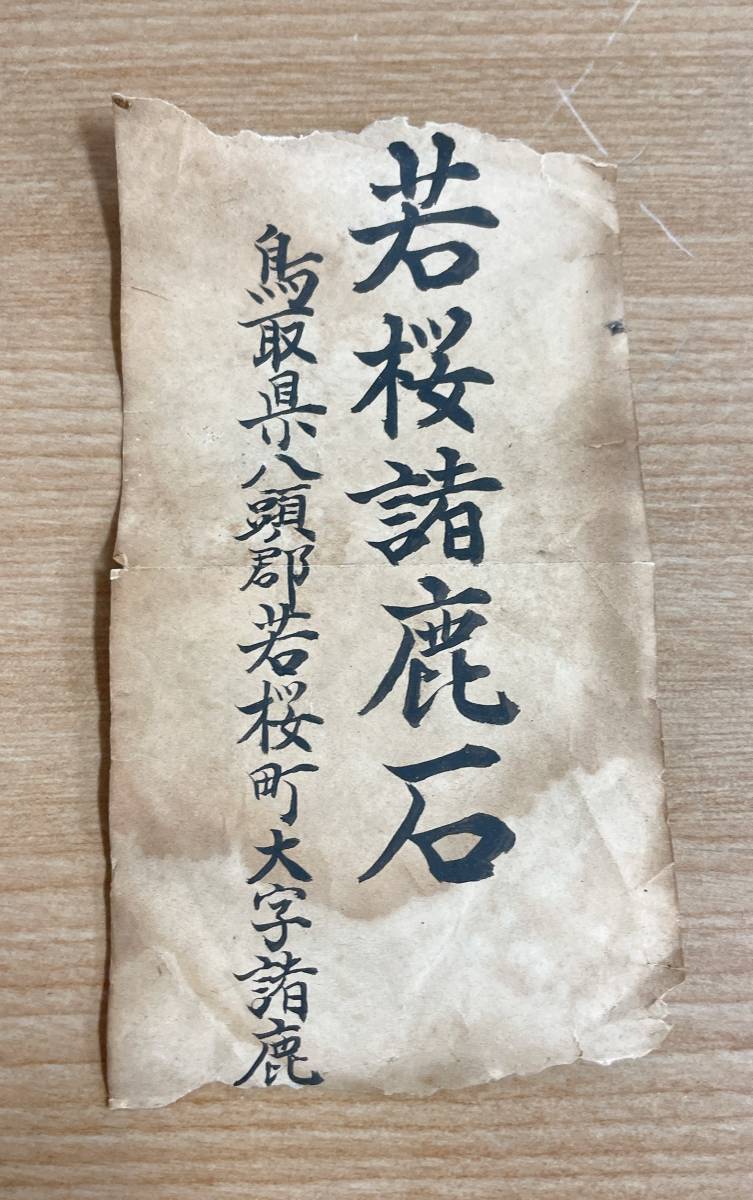 若桜諸鹿石
鳥取県八頭郡若桜町大字諸鹿